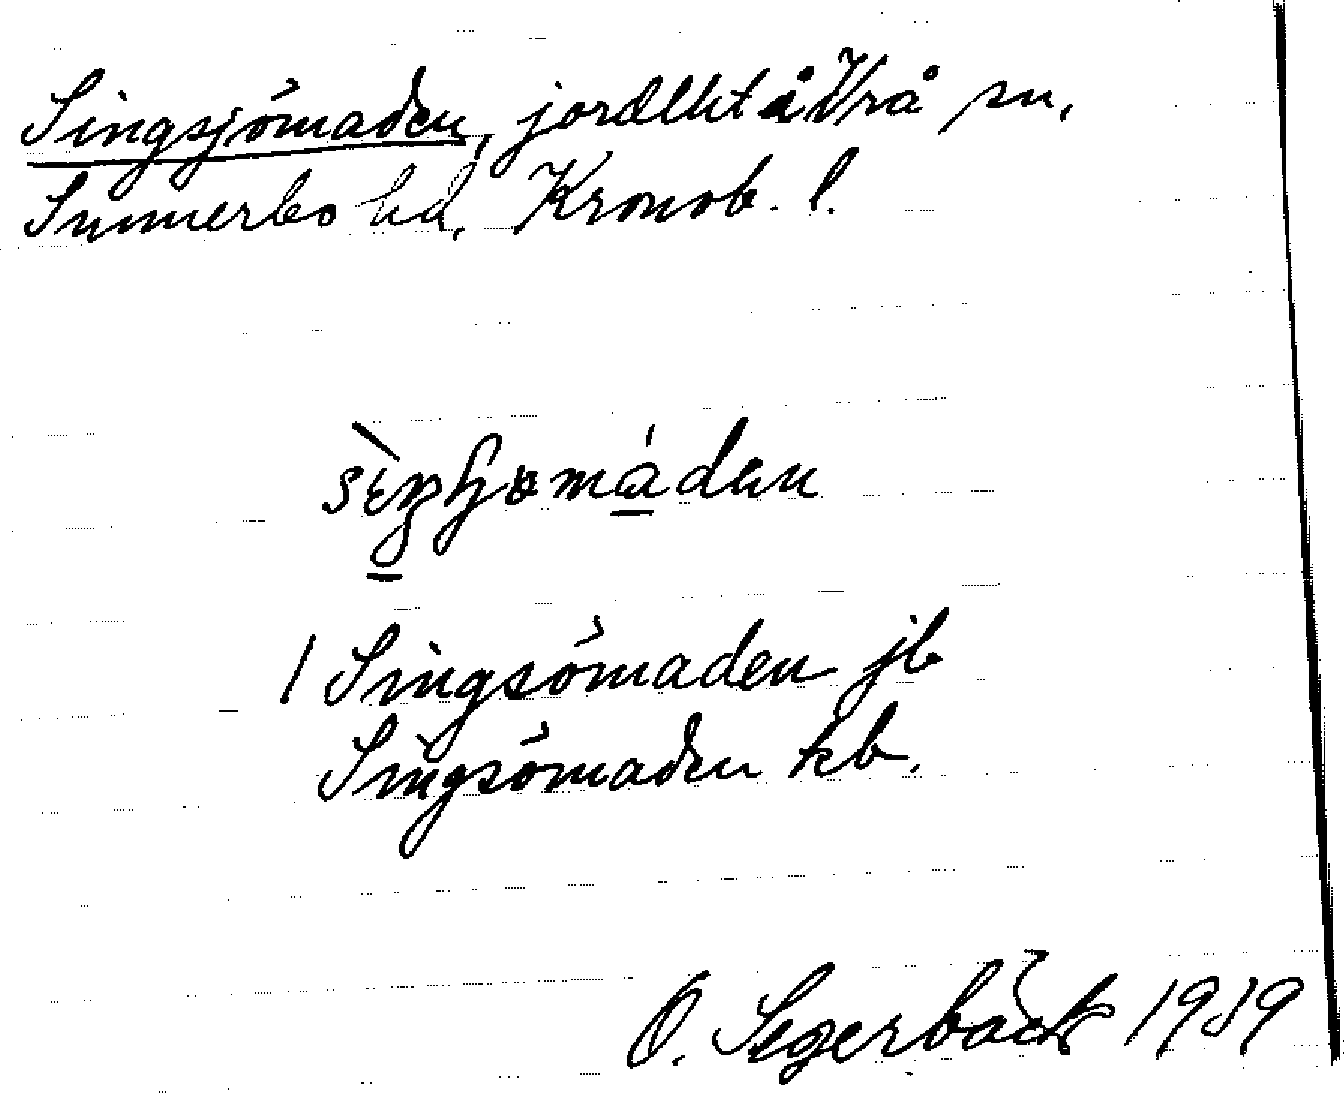 Singsjömaden, jordlht å Vrå sn,
Sunnerbo hd, Kronob. l.
1 Singsömaden jb
Singsömaden kb.
O. Segerbäck 1919